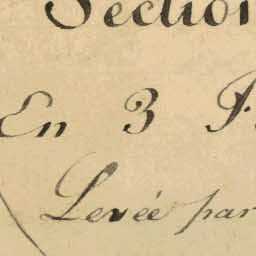 Section
En 3 F
Levée par